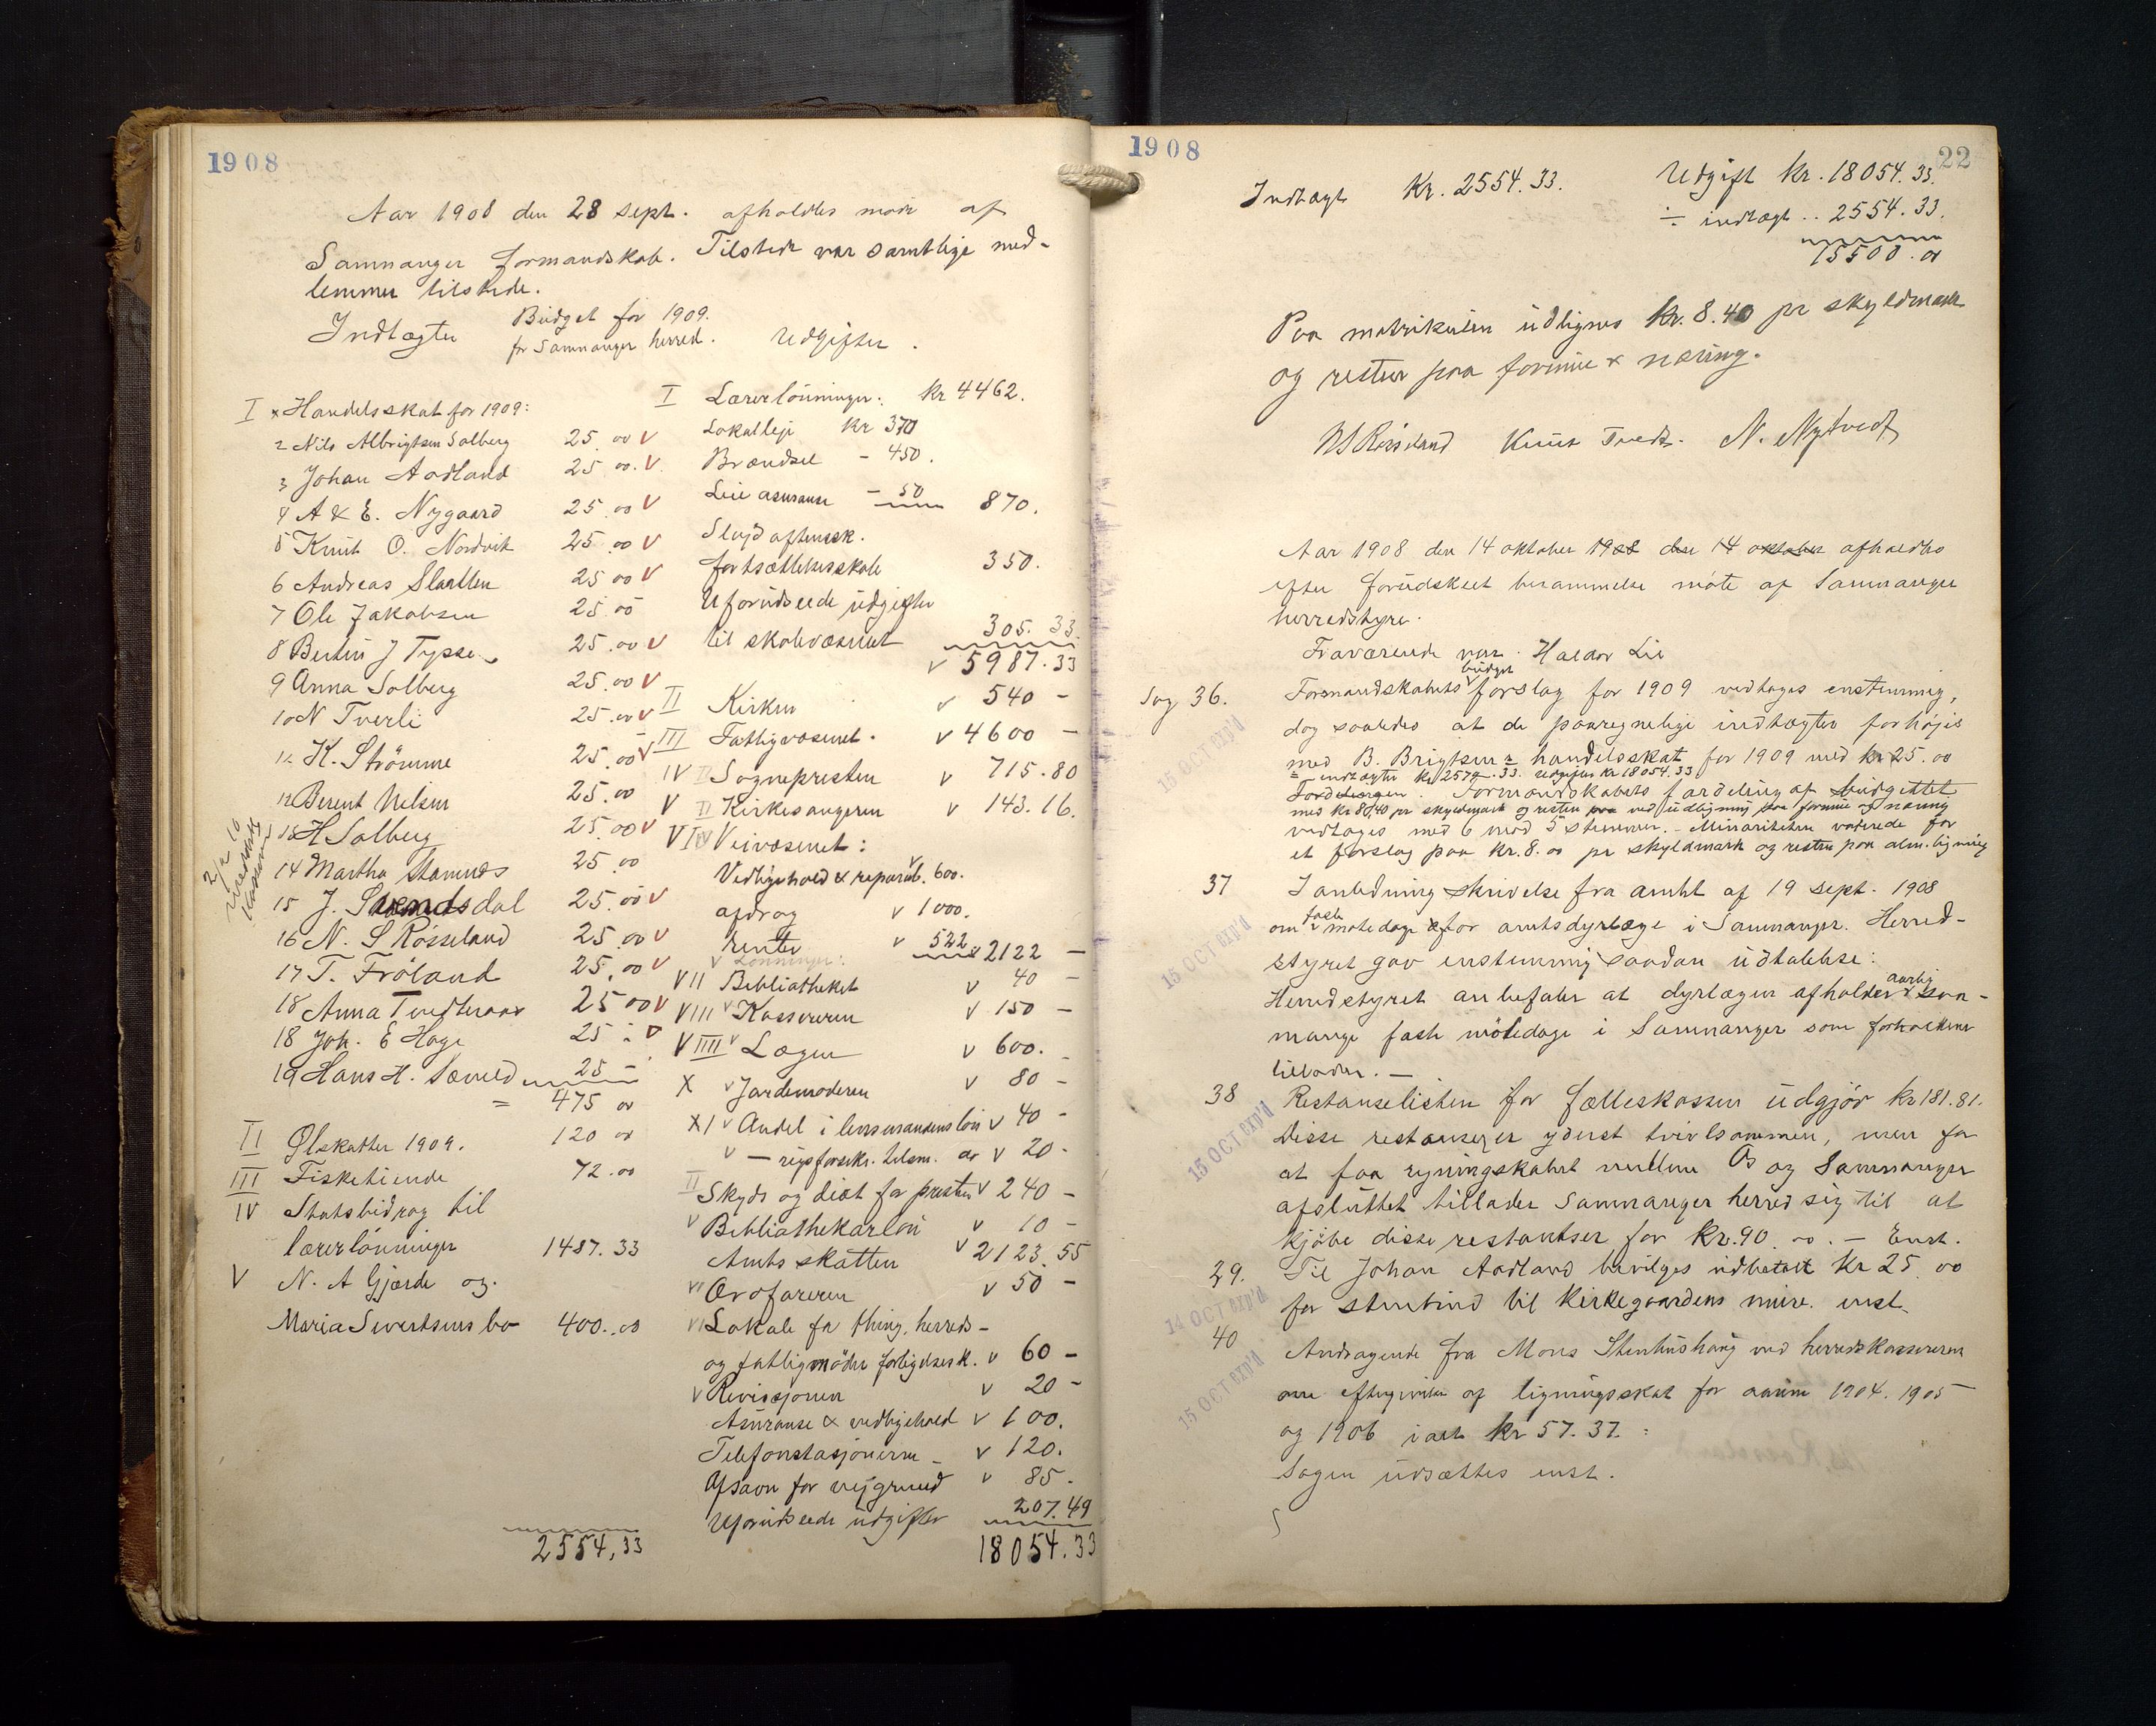 1908
Aar 1908 den 28 sept. afholdtes möde af
Samnanger formandskab. Tilstede var samtlige med-
lemmer tilstede.
Budget for 1909.
for Samnanger herred.
Indtægter
I Handelsskat for 1909:
2 Nils Albrigtsen Solberg 25.00 V
3 Johan Aadland 25.00 V
4 A & E. Nygaard 25.00 V
5 Knut O. Nordvik 25.00 V
6 Andreas Slatten 25.00 V
7 Ole Jakobsen 25.00
8 Bertin J Tysse 25.00 V
9 Anna Solberg 25.00 V
10 N Tverli 25.00 V
11 K. Strömme 25.00 V
12 Berent Nilsen 25.00
13 H Solberg 25.00 V
14 Martha Stamnes 25.00
15 J. Svendsdal 25.00 V
16 N. S Rösseland 25.00 V
17 T. Fröland 25.00 V
18 Anna Tvedteraas 25 00 V
18 Joh. E Hage 25 - V
19 Hans H. 25 -
= 475 00
II Ølskatter 1909. 120 00
III Fisketiende 72.00
IV Statsbidrag til
lærerlönninger 1487.33
V N. A Gjærde og
Maria Sivertsens bo 400.00
2554,33
Udgifter.
I Lærerlönninger: kr 4462.
Lokalleje kr 370
Brændsel - 450.
Leie assuranse - 50 870.
Slöjd aftensk.
fortsættelsesskole 350.
Uforudseede udgifter
til skolevæsenet 305.33.
V 5987.33
II Kirken V 540 -
III Fattigvæsenet. V 4600 -
IV Sognepresten V 715.80
V Kirkesangeren V 143.16.
VI Veivæsenet:
Vedligehold & reparat. 600.
afdrag V 1000.
renter V 522 2122 -
V Lönninger:
VII Bibliotheket V 40 -
VIII Kassereren V 150 -
VIIII Lægen V 600. -
X V Jordemoderen V 80 -
XI V Andel i lensmandens lön V 40 -
V - rigsforsikr. tilsm. do V 20 -
II Skyds og diæt for presten V 240 -
V Bibliothekarlön V 10 -
Amtsskatten V 2123.55
VI Arofareren V 50 -
VI Lokale for thing, herreds-
og fattigmöder forligelsesk. V 60 -
V Revisjonen V 20 -
Asuranse & vedligehold V 100.
Telefonstasjonerne - V 120.
Afsavn for veigrund V 85.
Uforudseede udgifter 207.49
18054.33
1908
22
Indtægt kr. 2554.33.
Udgift kr. 18054.33.
÷ indtægt .. 2554.33.
15500.00
Paa matrikulen udlignes kr. 8.40 pr skyldmark
og resten paa formue & næring.
NS Rösseland Knut Tvedt. N. Nytvedt
Aar 1908 den 14 oktober 1908 den 14 oktober afholdtes
efter forudskeet berammelse möte af Samnanger
herredstyre.
Fraværende var Haldor Lie
Sag 36. Formandskabets budget forslag for 1909 vedtages enstemmig,
dog saaledes at de paaregnelige indtægter forhöjes
med B. Brigtsen's handelsskat for 1909 med kr 25.00
= indtægter kr 2579.33. udgifter kr 18054.33
Fordelingen. Formandskabets fordeling af budgettet
med kr 8,40 pr skyldmark og resten paa ved udligning paa formue og næring
vedtages med 6 mod 5 stemmer. - Minoriteten voterede for
et forslag paa kr. 8.00 pr skyldmark og resten paa alm. ligning
37 I anledning skrivelse fra amtet af 19 sept. 1908
om faste mötedage for amtsdyrlæge i Samnanger. Herred-
styret gav enstemmig saadan udtalelse:
Herredstyret anbefaler at dyrlægen afholder aarlig saa-
mange faste mötedage i Samnanger som forholdene
tillader. -
38 Restanselisten for fælleskassen udgjör kr 181.81.
Disse restanser er yderst tvivlsommen, men for
at faa regningskabet mellem Os og Samnanger
afsluttet tillader Samnanger herred sig til at
kjöbe disse restantser for kr. 90.00. - Enst.
29. Til Johan Aadland bevilges udbetalt kr 25.00
for stenbind til kirkegaardens mure. enst.
40 Andragende fra Mons Stenhushaug ved herredskassereren
om eftergivelse af ligningsskat for aarene 1904. 1905
og 1906 ialt kr 57.37.
Sagen udsættes enst.
15 OCT exp'd
15 OCT exp'd
15 OCT exp'd
14 OCT exp'd
15 OCT exp'd